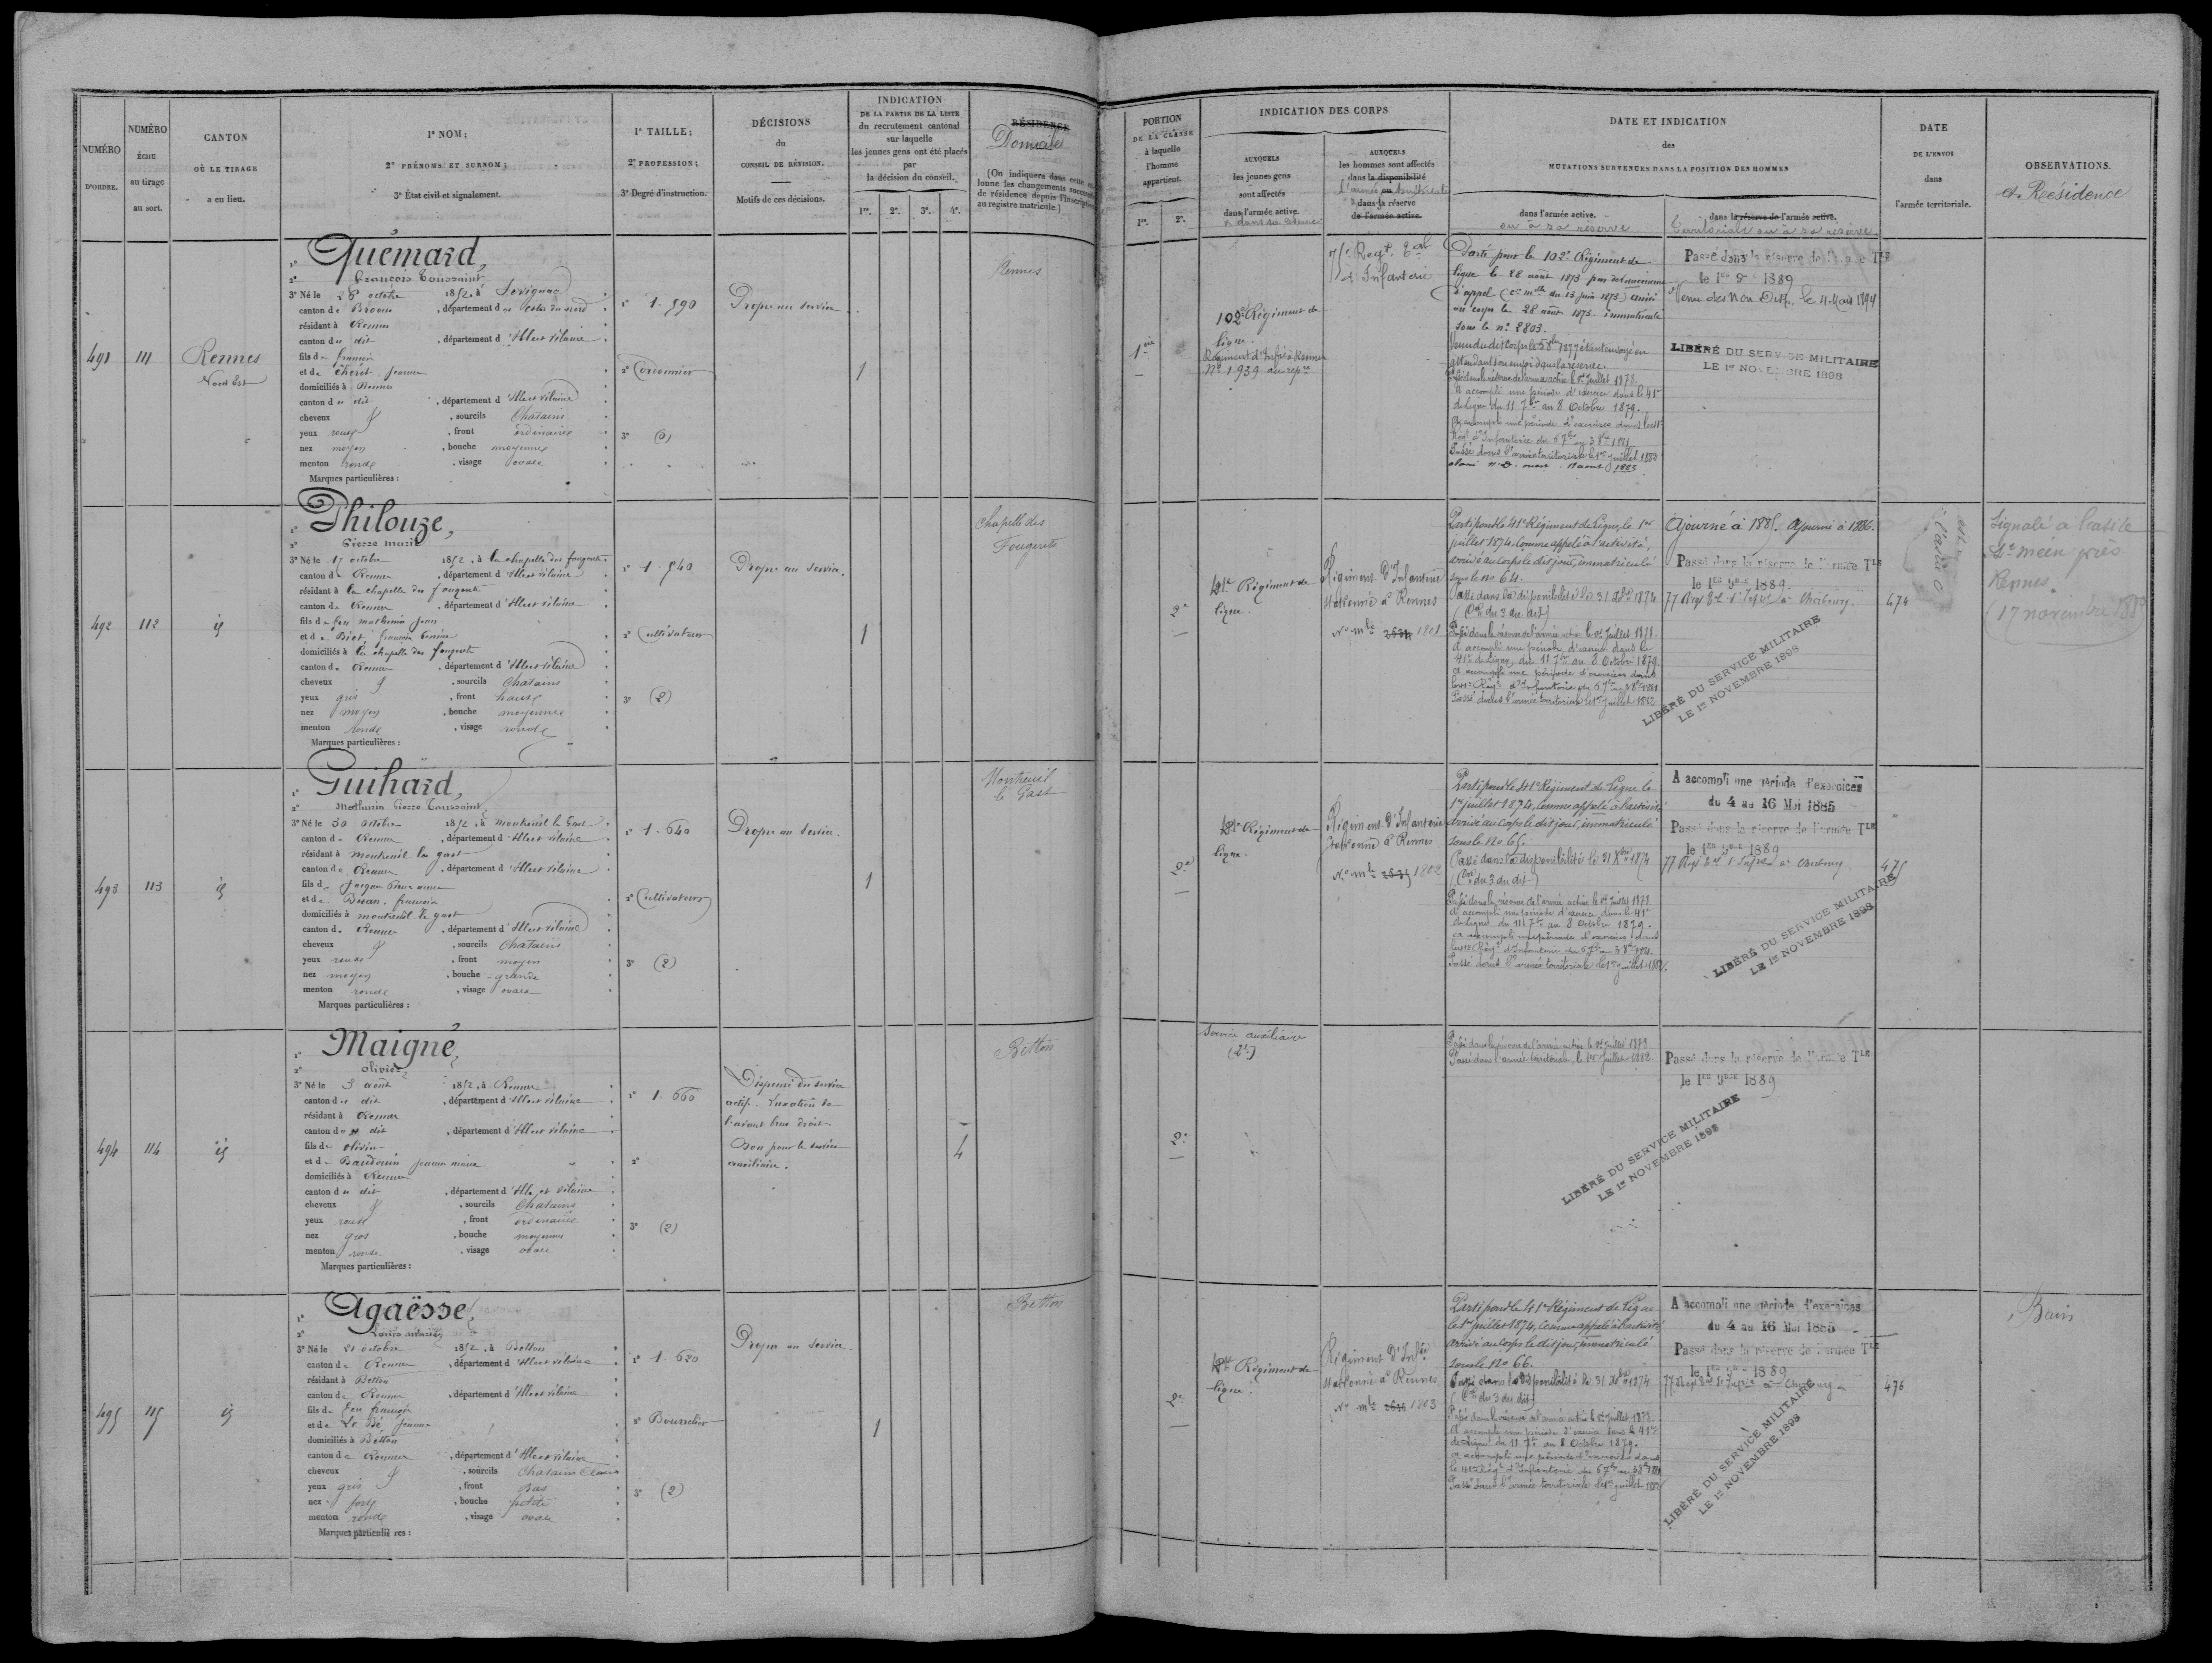 NUMÉRO
D'ORDRE.
NUMÉRO
ÉCHU
au tirage
au sort.
CANTON
OÙ LE TIRAGE
a eu lieu.
1º NOM;
2º PRÉNOMS ET SURNOM;
3º État civil et signalement.
1º TAILLE;
2º PROFESSION;
3º Degré d'instruction.
DÉCISIONS
du
CONSEIL DE RÉVISION.
Motifs de ces décisions.
INDICATION
DE LA PARTIE DE LA LISTE
du recrutement cantonal
sur laquelle
les jeunes gens ont été placés
par
la décision du conseil.
1re. 2e. 3e. 4e.
RÉSIDENCE
Domicile
PORTION
DE LA CLASSE
à laquelle
l'homme
appartient.
1re. 2e.
INDICATION DES CORPS
AUXQUELS
les jeunes gens
sont affectés
dans l'armée active.
AUXQUELS
les hommes sont affectés
dans la disponibilité
dans la réserve
de l'armée active.
DATE ET INDICATION
des
MUTATIONS SURVENUES DANS LA POSITION DES HOMMES
dans l'armée active.
ou à sa réserve
dans la réserve de l'armée active.
Territoriale ou à sa réserve
DATE
DE L'ENVOI
dans
l'armée territoriale.
OBSERVATIONS.
et Résidence
491
111
Rennes
Nord Est
1º Quemard,
2º François Toussaint
3º Né le 28 octobre 1852, à Sévignac
canton de Broons, département des Côtes du nord
résidant à Rennes
canton du dit, département d'Ille et Vilaine
fils de François
et de Chérel Jeanne
domiciliés à Rennes
canton du dit, département d'Ille et Vilaine
cheveux &, sourcils Chatains
yeux roux, front ordinaire
nez moyen, bouche moyenne
menton rond, visage ovale
Marques particulières :
1º 1.590
2º Cordonnier
3º (0)
Propre au service
1
Rennes
1ère
102e Régiment de
ligne.
Régiment d'Infrie à Rennes
No 1939 au repre
Regt Eal
d'Infanterie
Porté pour le 102e Régiment de
ligne le 28 août 1873
au corps le 28 août 1873 immatriculé
sous le nº 8803.
A accompli une période d'exercices dans le 41e
de Ligne du 11 7bre au 8 Octobre 1879.
Passé dans l'armée territoriale le 1er juillet 1882
Passé dans la réserve de l'armée TLE
le 1er 9bre 1889
Venu des Non Disp. le 4 Mars 1894
LIBÉRÉ DU SERVICE MILITAIRE
LE 1er NOVEMBRE 1898
492
112
id
1º Philouze,
2º Pierre marie
3º Né le 17 octobre 1852, à la chapelle des fougeretz
canton de Rennes, département d'Ille et Vilaine
résidant à la chapelle des fougeretz
canton de Rennes, département d'Ille et Vilaine
fils de feu mathurin Jean
domiciliés à la chapelle des fougeretz
canton de Rennes, département d'Ille et Vilaine
cheveux &, sourcils Chatains
yeux gris, front haut
nez moyen, bouche moyenne
menton rond, visage rond
Marques particulières :
1º 1.540
2º Cultivateur
3º (2)
Propre au service.
1
Chapelle des
Fougeretz
2e
41e Régiment de
ligne.
Régiment d'Infanterie
stationné à Rennes
No mle 1801
Parti pour le 41e Régiment de Ligne, le 1er
juillet 1874, comme appelé à l'activité,
arrivé au corps le dit jour, immatriculé
sous le no 64.
Passé dans la disponibilité le 31 Xbre 1874
(Don du 3 du dit)
Passé dans la réserve de l'armée active le 1er Juillet 1878.
A accompli une période d'exercices dans le
41e de Ligne, du 11 7bre au 8 Octobre 1879.
A accompli une période d'exercices dans
Passé dans l'armée territoriale le 1er juillet 1882
Ajourné à 1885. Ajourné à 1886.
Passé dans la réserve de l'armée TLE
le 1er 9bre 1889
77 Regt Eal d'Infrie à Cherbourg
LIBÉRÉ DU SERVICE MILITAIRE
LE 1er NOVEMBRE 1898
474
Signalé à l'asile
St méen près
Rennes.
493
113
id
1º Guihard,
2º Mathurin Pierre Toussaint
3º Né le 30 octobre 1852, à Montreuil le Gast
canton de Rennes, département d'Ille et Vilaine
résidant à montreuil le gast
canton de Rennes, département d'Ille et Vilaine
domiciliés à montreuil le gast
canton de Rennes, département d'Ille et Vilaine
cheveux &, sourcils Chatains
yeux roux, front moyen
nez moyen, bouche grande
menton rond, visage ovale
Marques particulières :
1º 1.640
2º Cultivateur
3º (2)
Propre au service.
1
Montreuil
le Gast
2e
41e Régiment de
ligne.
Régiment d'Infanterie
stationné à Rennes
No mle 1802
Parti pour le 41e Régiment de Ligne le
1er juillet 1874, comme appelé à l'activité
arrivé au corps le dit jour, immatriculé
sous le No 65.
Passé dans la disponibilité le 31 Xbre 1874
(Don du 3 du dit)
Passé dans la réserve de l'armée active le 1er Juillet 1878
A accompli une période d'exercices dans le 41e
de Ligne du 11 7bre au 8 Octobre 1879.
Passé dans l'armée territoriale le 1er juillet 1882.
A accompli une période d'exercices
du 4 au 16 Mai 1885
Passé dans la réserve de l'armée TLE
le 1er 9bre 1889
77 Regt Eal d'Infrie à Cherbourg
LIBÉRÉ DU SERVICE MILITAIRE
LE 1er NOVEMBRE 1898
475
494
114
id
1º Maigné,
2º Olivier
3º Né le 3 août 1852, à Rennes
canton du dit, département d'Ille et Vilaine
résidant à Rennes
canton du dit, département d'Ille et Vilaine
fils de Olivier
et de Baudouin Jeanne marie
domiciliés à Rennes
canton du dit, département d'Ille et Vilaine
cheveux &, sourcils Chatains
yeux roux, front ordinaire
nez gros, bouche moyenne
menton rond, visage ovale
Marques particulières :
1º 1.660
2º
3º (2)
Dispensé du service
actif. Luxation de
l'avant bras droit.
Bon pour le service
auxiliaire.
4
Betton
2e
Service auxiliaire
Passé dans la réserve de l'armée active le 1er Juillet 1878
Passé dans l'armée territoriale, le 1er Juillet 1882
Passé dans la réserve de l'armée TLE
le 1er 9bre 1889
LIBÉRÉ DU SERVICE MILITAIRE
LE 1er NOVEMBRE 1898
495
115
id
1º Agaësse,
2º Louis marie
3º Né le 21 octobre 1852, à Betton
canton de Rennes, département d'Ille et Vilaine
résidant à Betton
canton de Rennes, département d'Ille et Vilaine
fils de feu françois
et de Le Bé Jeanne
domiciliés à Betton
canton de Rennes, département d'Ille et Vilaine
cheveux &, sourcils Chatains Clairs
yeux gris, front bas
nez fort, bouche petite
menton rond, visage ovale
Marques particulières :
1º 1.620
2º Bourrelier
3º (2)
Propre au service.
1
Betton
2e
41e Régiment de
ligne.
Régiment d'Infrie
stationné à Rennes
No mle 1803
Parti pour le 41e Régiment de Ligne
le 1er juillet 1874, comme appelé à l'activité,
arrivé au corps le dit jour, immatriculé
sous le No 66.
Passé dans la disponibilité le 31 Xbre 1874
(Don du 3 du dit)
Passé dans la réserve de l'armée active le 1er Juillet 1878.
A accompli une période d'exercices dans le 41e
de Ligne du 11 7bre au 8 Octobre 1879.
A accompli une période d'exercices dans
Passé dans l'armée territoriale le 1er juillet 1882
A accompli une période d'exercices
du 4 au 16 Mai 1885
Passé dans la réserve de l'armée TLE
le 1er 9bre 1889
77 Regt Eal d'Infrie à Cherbourg
LIBÉRÉ DU SERVICE MILITAIRE
LE 1er NOVEMBRE 1898
476
Bain